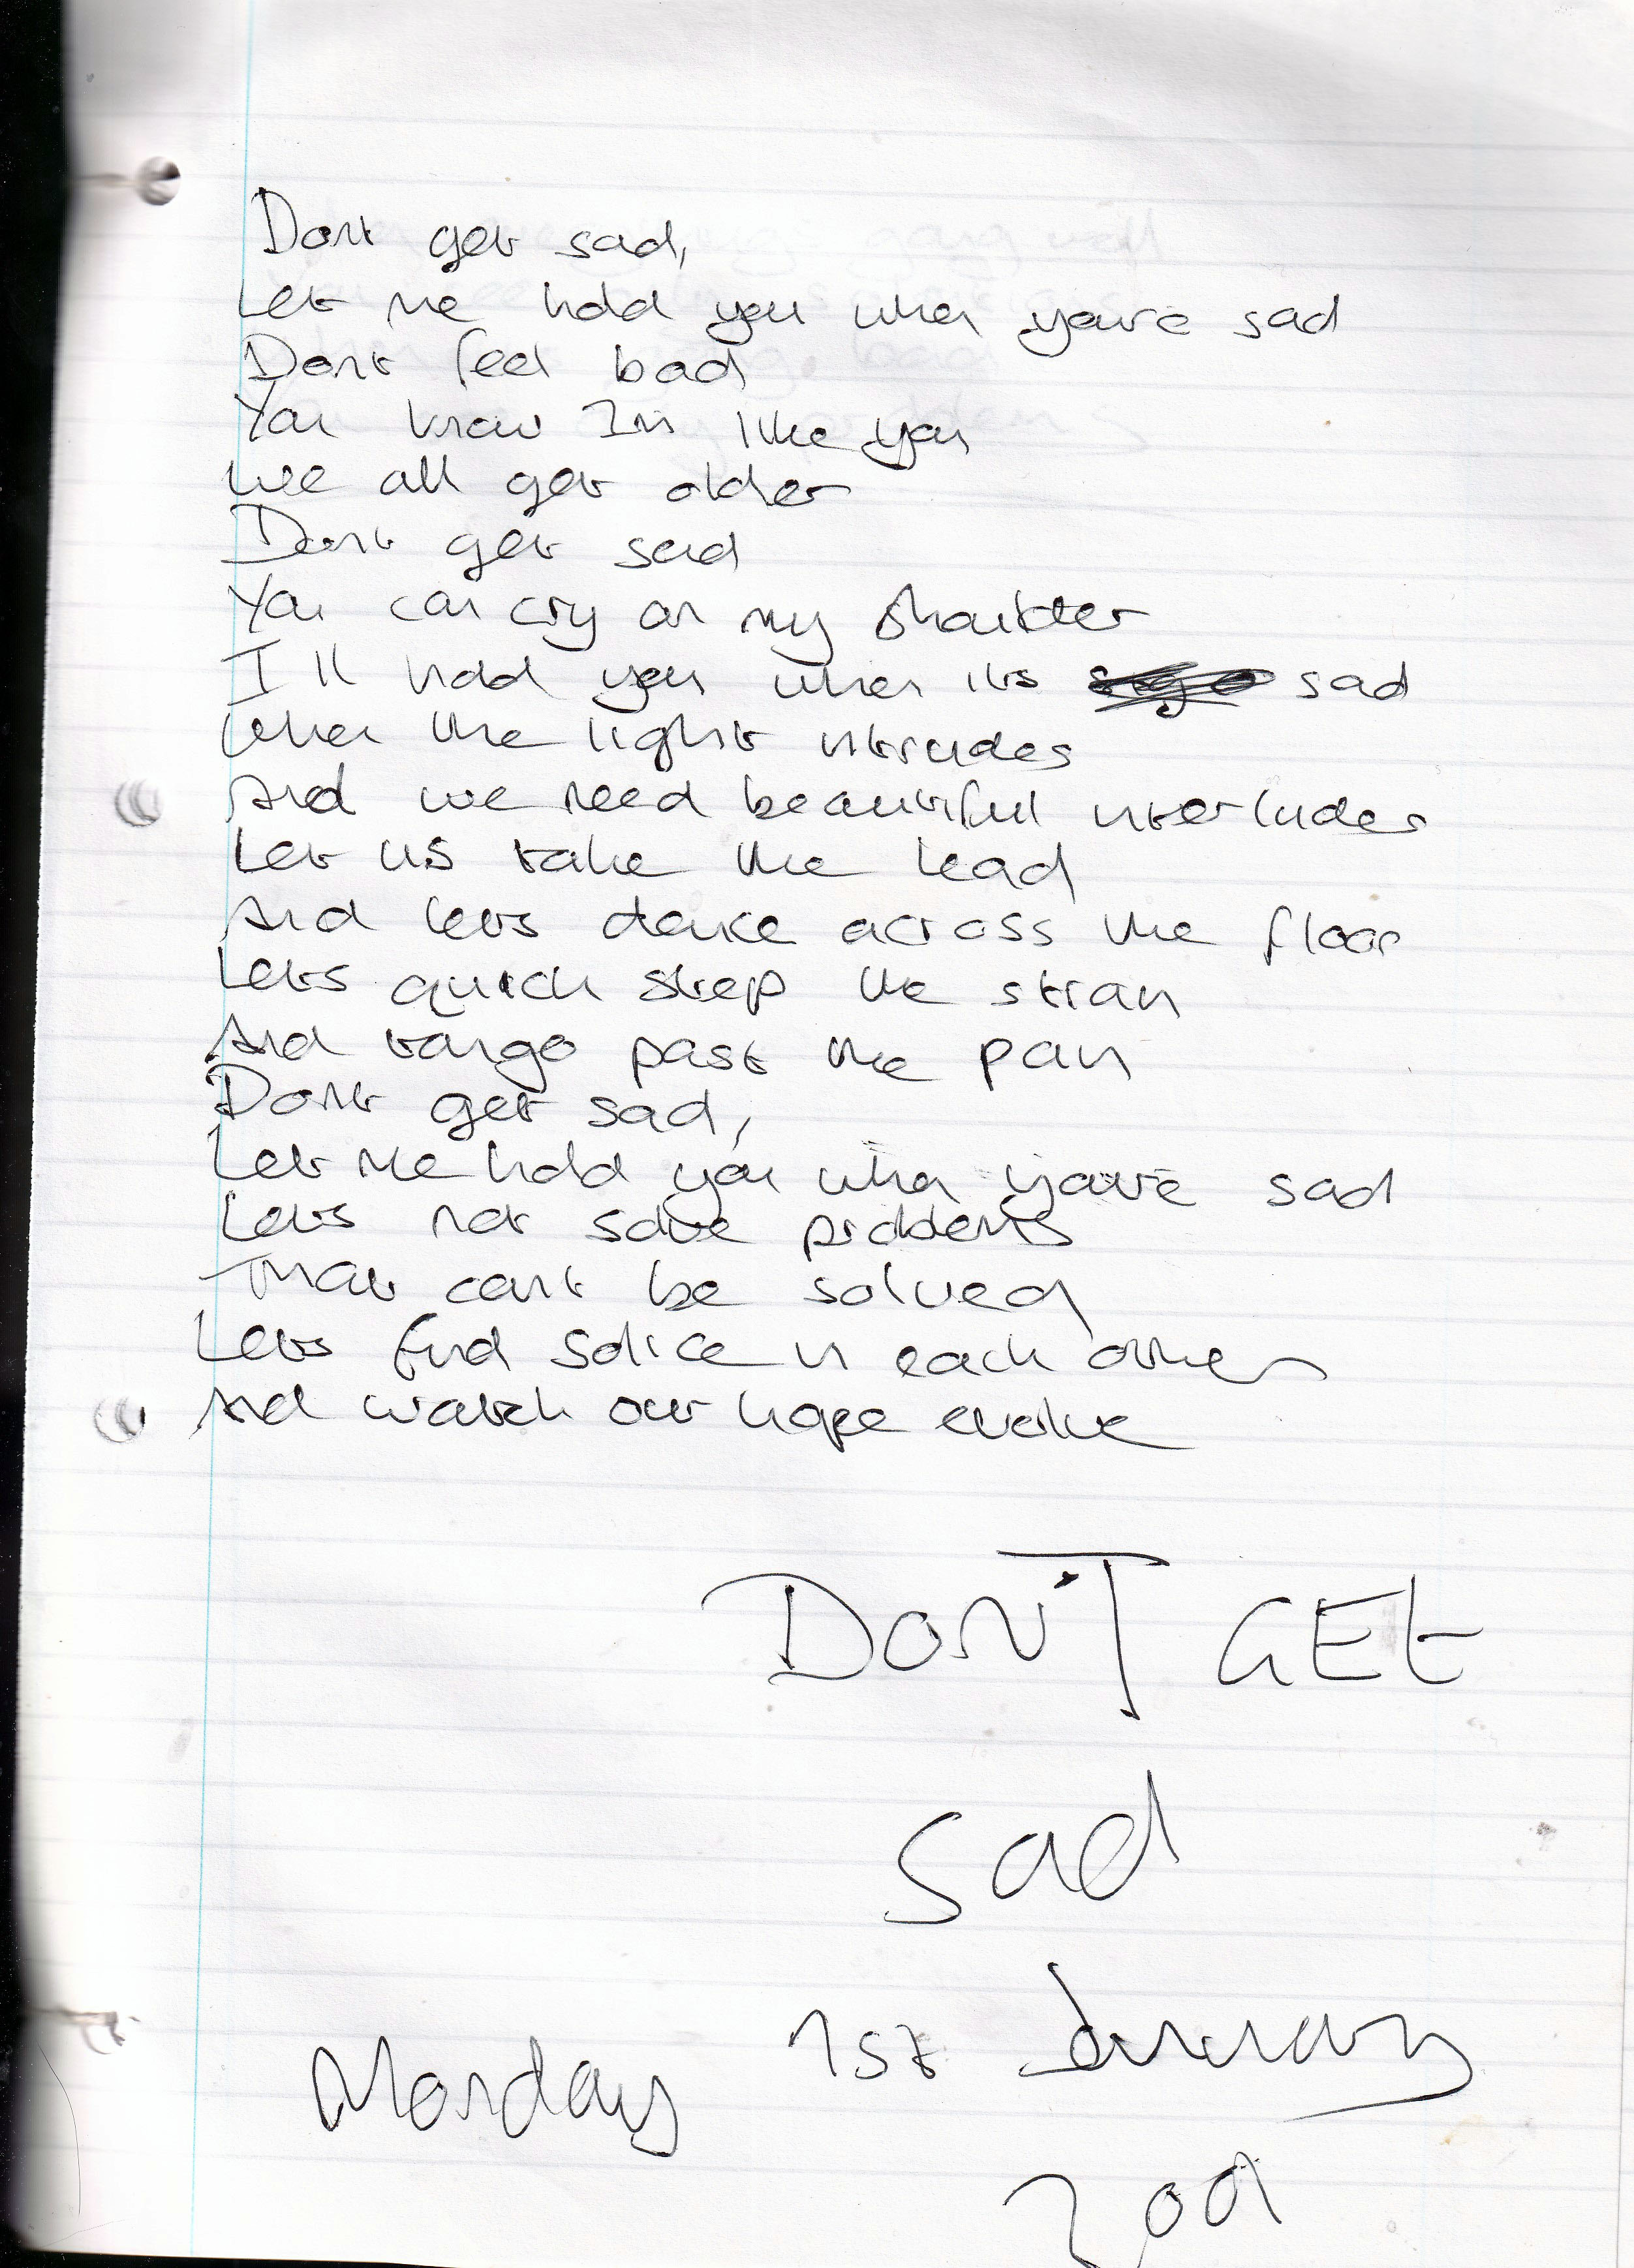 Dont get sad,
Let me hold you when youre sad
Dont feel bad
You know Im like you
We all get older
Dont get sad
You can cry on my shoulder
I ll hold you when its sad
When the light intrudes
And we need beautiful interludes
Let us take the lead
And lets dance across the floor
Lets quick step the strain
And tango past the pain
Dont get sad,
Let me hold you when youre sad
Lets not solve problems
That cant be solved
Lets find solice in each other
And watch our hope evolve
DON'T GET
sad
Monday 1st January